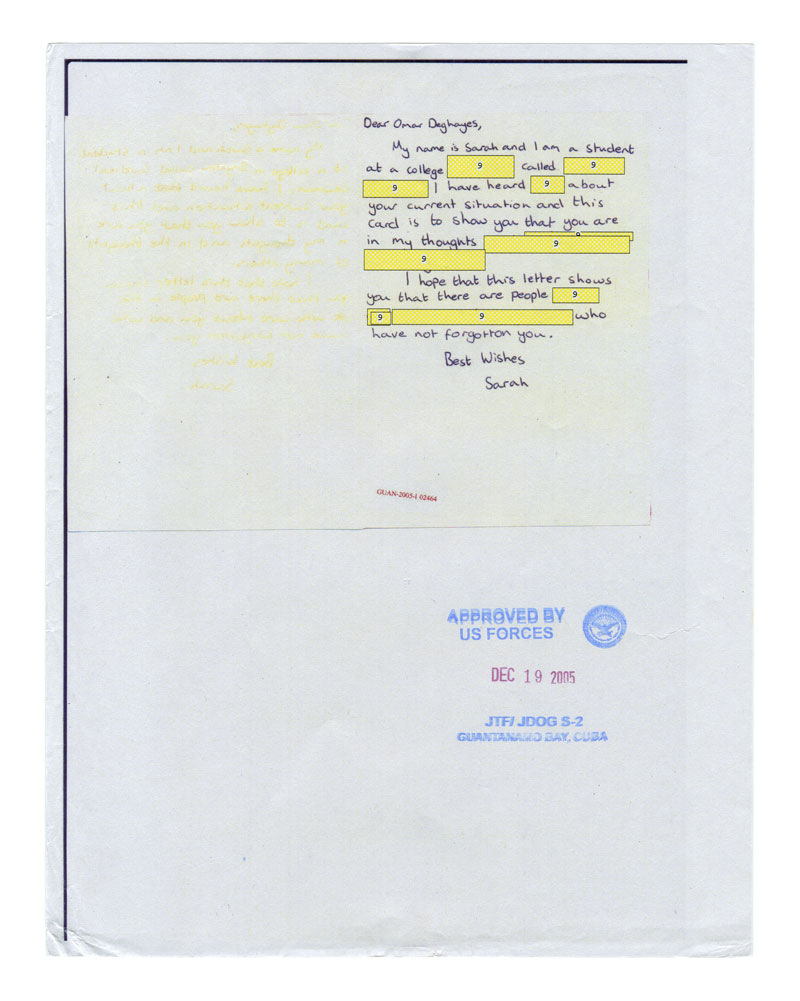 Dear Omar Deghayes,
My name is Sarah and I am a student
at a college 9 called 9
9 I have heard 9 about
your current situation and this
card is to show you that you are
9
in my thoughts 9
9
I hope that this letter shows
you that there are people 9
9 9 who
have not forgotton you.
Best Wishes
Sarah
GUAN-2005-I 02464
APPROVED BY
US FORCES
DEC 19 2005
JTF/ JDOG S-2
GUANTANAMO BAY, CUBA